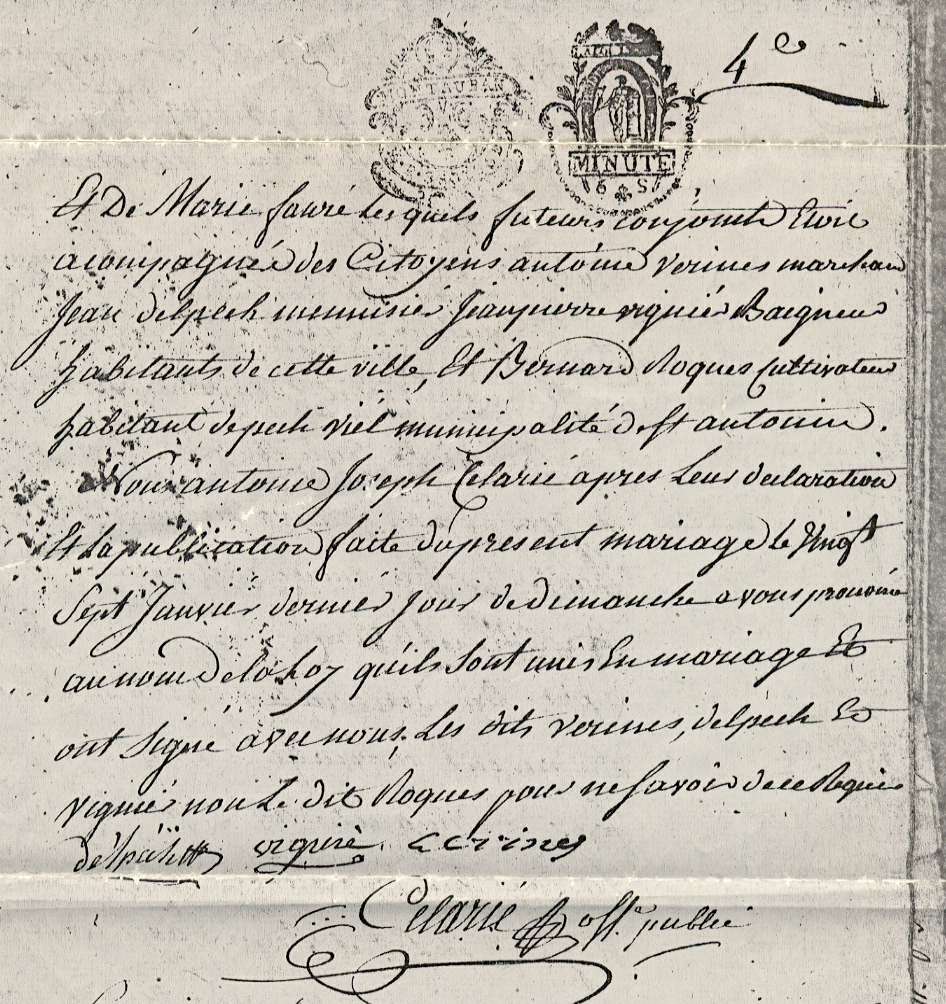 4e
MONTAUBAN
LA LOI
MINUTE
6 S
Et De Marie fauré Lesquels futeurs conjoints Etoit
acompagnée des Citoyens antoine verines marchand
Jean delpech menuisier Jeanpierre viguier Baigneur
habitants de cette ville, Et Bernard Roques Cultivateur
habitant de pech viel municipalité de st antonin.
Nous antoine Joseph Celarié apres Leur declaration
Et La publication faite du present mariage le Vingt
Sept Janvier dernier Jour de dimanche avons prononcé
au nom de la Loy qu'ils sont unis En mariage Et
ont signé avec nous, Les dits verines, delpech Et
viguier non Le dit Roques pour ne savoir de ce Requis
viguié verines
Celarié off. public